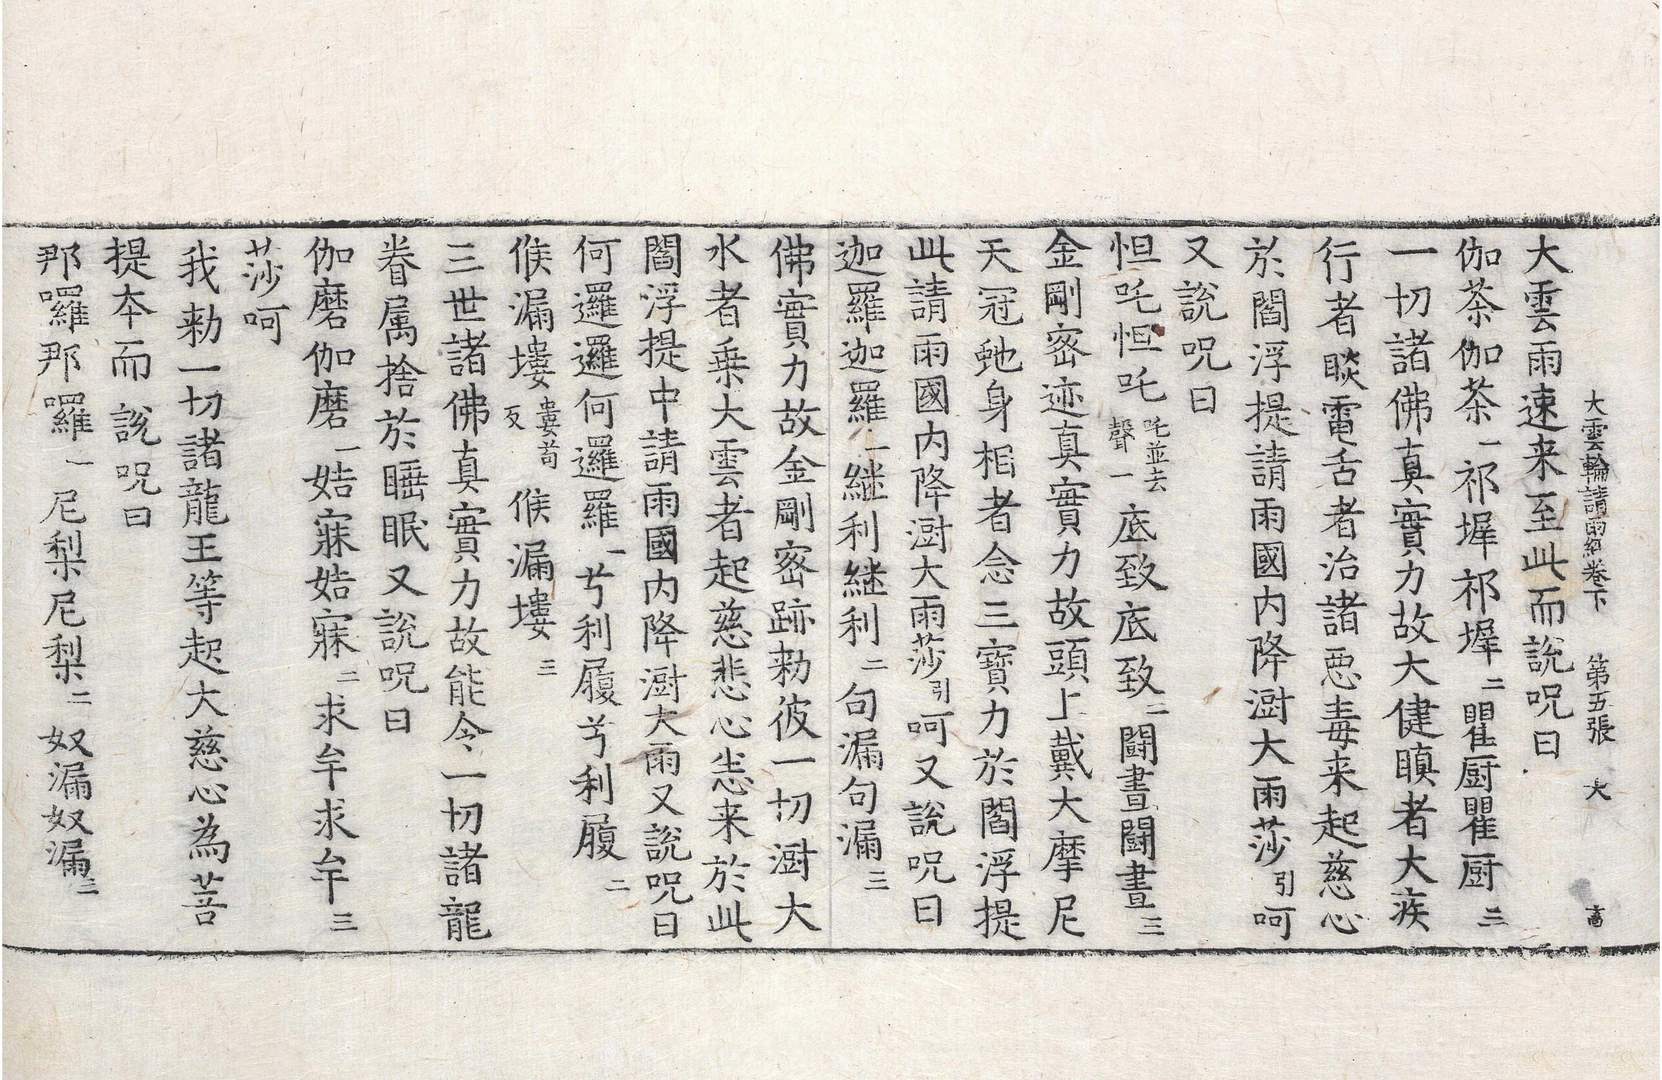 大雲輪請雨經卷下　第五張　大　高
大雲雨速来至此而說呪曰
伽茶伽茶一祁墀祁墀二瞿厨瞿厨三
一切諸佛真實力故大健瞋者大疾
行者睒電舌者治諸惡毒来起慈心
於閻浮提請雨國内降澍大雨莎引呵
又說呪曰
怛吒怛吒吒並去聲一底致底致二鬪晝鬪晝三
金剛密迹真實力故頭上戴大摩尼
天冠虵身相者念三寶力於閻浮提
此請雨國内降澍大雨莎引呵又說呪曰
迦羅迦羅一継利継利二句漏句漏三
佛實力故金剛密跡勑彼一切澍大
水者乗大雲者起慈悲心悉来於此
閻浮提中請雨國内降澍大雨又說呪曰
何邏邏何邏羅一兮利履兮利履二
候漏塿婁苟反候漏塿三
三世諸佛真實力故能令一切諸龍
眷属捨於睡眠又說呪曰
伽磨伽磨一姞寐姞寐二求牟求牟三
莎呵
我勑一切諸龍王等起大慈心為菩
提本而說呪曰
那囉那囉一尼梨尼梨二奴漏奴漏三